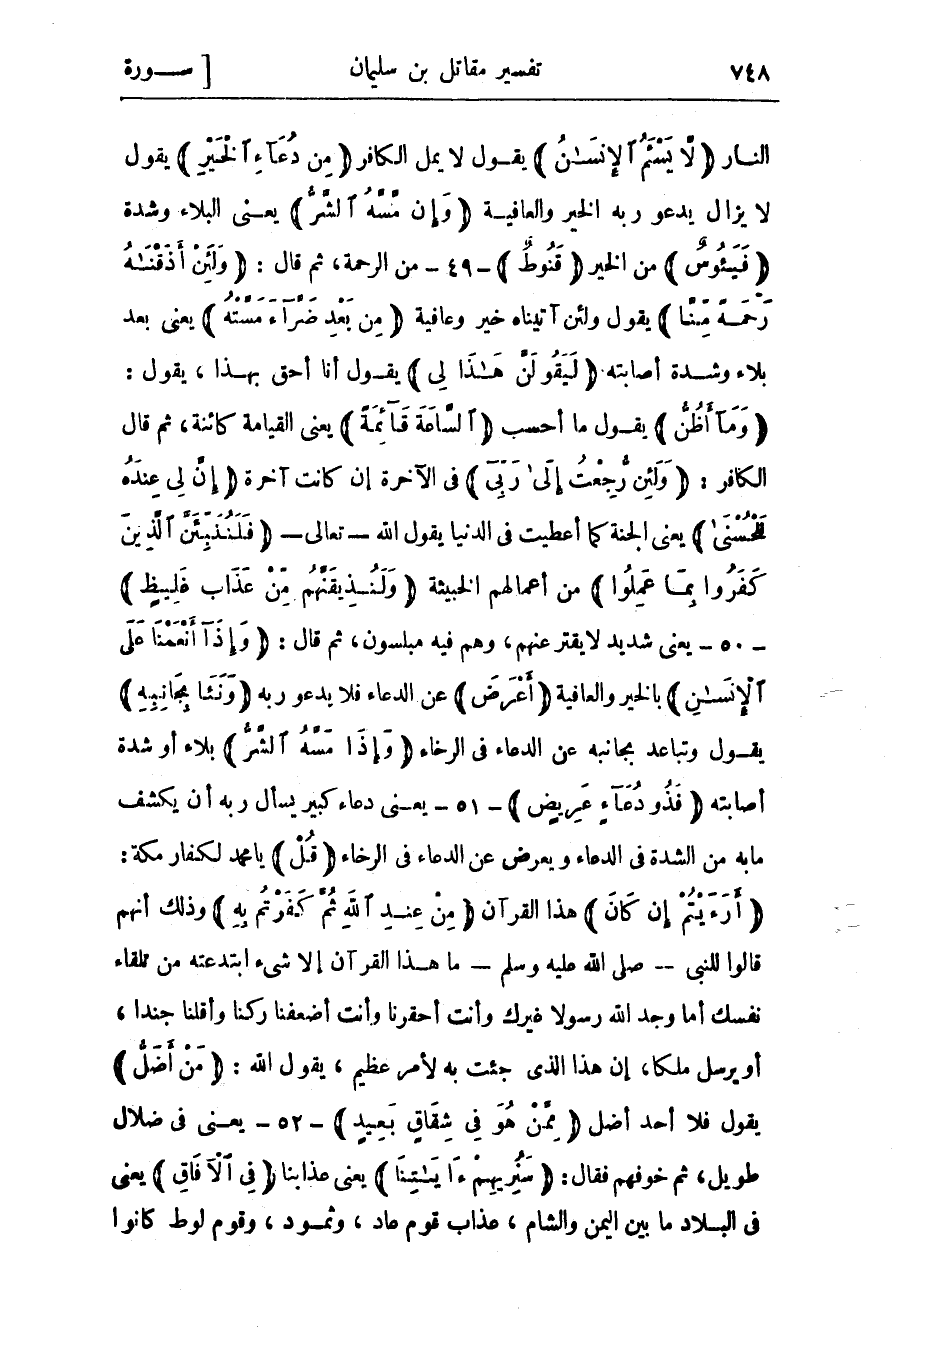 ٧٤٨ تفسير مقاتل بن سليمان [ ســورة
النـار ( لَّا يَسْـَٔمُ ٱلْإِنسَـٰنُ ) يقـول لا يمل الكافر ( مِن دُعَآءِ ٱلْخَيْرِ ) يقول
لا يزال يدعو ربه الخير والعافيـة ( وَإِن مَّسَّهُ ٱلشَّرُّ ) يعـنى البلاء وشدة
( فَيَـُٔوسٌ ) من الخير ( قَنُوطٌ ) - ٤٩ - من الرحمة، ثم قال : ( وَلَئِنْ أَذَقْنَـٰهُ
رَحْمَـةً مِّنَّـا ) يقول ولئن آتيناه خير وعافية ( مِن بَعْدِ ضَرَّآءَ مَسَّتْهُ ) يعنى بعد
بلاء وشـدة أصابته ( لَيَقُولَنَّ هَـٰذَا لِى ) يقـول أنا أحق بهـذا ، يقول :
( وَمَآ أَظُنُّ ) يقـول ما أحسب ( ٱلسَّاعَةَ قَـآئِمَةً ) يعنى القيامة كائنة، ثم قال
الكافر : ( وَلَئِن رُّجِعْتُ إِلَىٰ رَبِّىٓ ) فى الآخرة إن كانت آخرة ( إِنَّ لِى عِندَهُ
لَلْحُسْنَىٰ ) يعنى الجنة كما أعطيت فى الدنيا يقول الله — تعالى — ( فَلَنُنَبِّئَنَّ ٱلَّذِينَ
كَفَرُوا بِمَـا عَمِلُوا ) من أعمالهم الخبيثة ( وَلَنُـذِيقَنَّهُم مِّنْ عَذَابٍ غَلِيـظٍ )
- ٥٠ - يعنى شديد لا يفتر عنهم، وهم فيه مبلسون، ثم قال : ( وَإِذَآ أَنْعَمْنَا عَلَى
ٱلْإِنسَـٰنِ ) بالخير والعافية ( أَعْرَضَ ) عن الدعاء فلا يدعو ربه ( وَنَـَٔا بِجَانِبِهِ )
يقـول وتباعد بجانبه عن الدعاء فى الرخاء ( وَإِذَا مَسَّهُ ٱلشَّرُّ ) بلاء أو شدة
أصابته ( فَذُو دُعَآءٍ عَرِيضٍ ) - ٥١ - يعـنى دعاء كبير يسأل ربه أن يكشف
مابه من الشدة فى الدعاء ويعرض عن الدعاء فى الرخاء ( قُلْ ) يا محمد لكفار مكة :
( أَرَءَيْتُمْ إِن كَانَ ) هذا القرآن ( مِنْ عِنـدِ ٱللَّهِ ثُمَّ كَفَرْتُم بِهِ ) وذلك أنهم
قالوا للنبى -- صلى الله عليه وسلم — ما هـذا القرآن إلا شىء ابتدعته من تلقاء
نفسك أما وجد الله رسولا غيرك وأنت أحقرنا وأنت أضعفنا ركنا وأقلنا جندا ،
أو يرسل ملكا، إن هذا الذى جئت به لأمر عظيم ، يقول الله : ( مَنْ أَضَلُّ )
يقول فلا أحد أضل ( مِمَّنْ هُوَ فِى شِقَاقٍ بَعِيدٍ ) - ٥٢ - يعـنى فى ضلال
طويل، ثم خوفهم فقال: ( سَنُرِيهِمْ ءَايَـٰتِنَا ) يعنى عذابنا ( فِى ٱلْآفَاقِ ) يعنى
فى البـلاد ما بين اليمن والشام ، عذاب قوم عاد ، وثمـود ، وقوم لوط كانوا